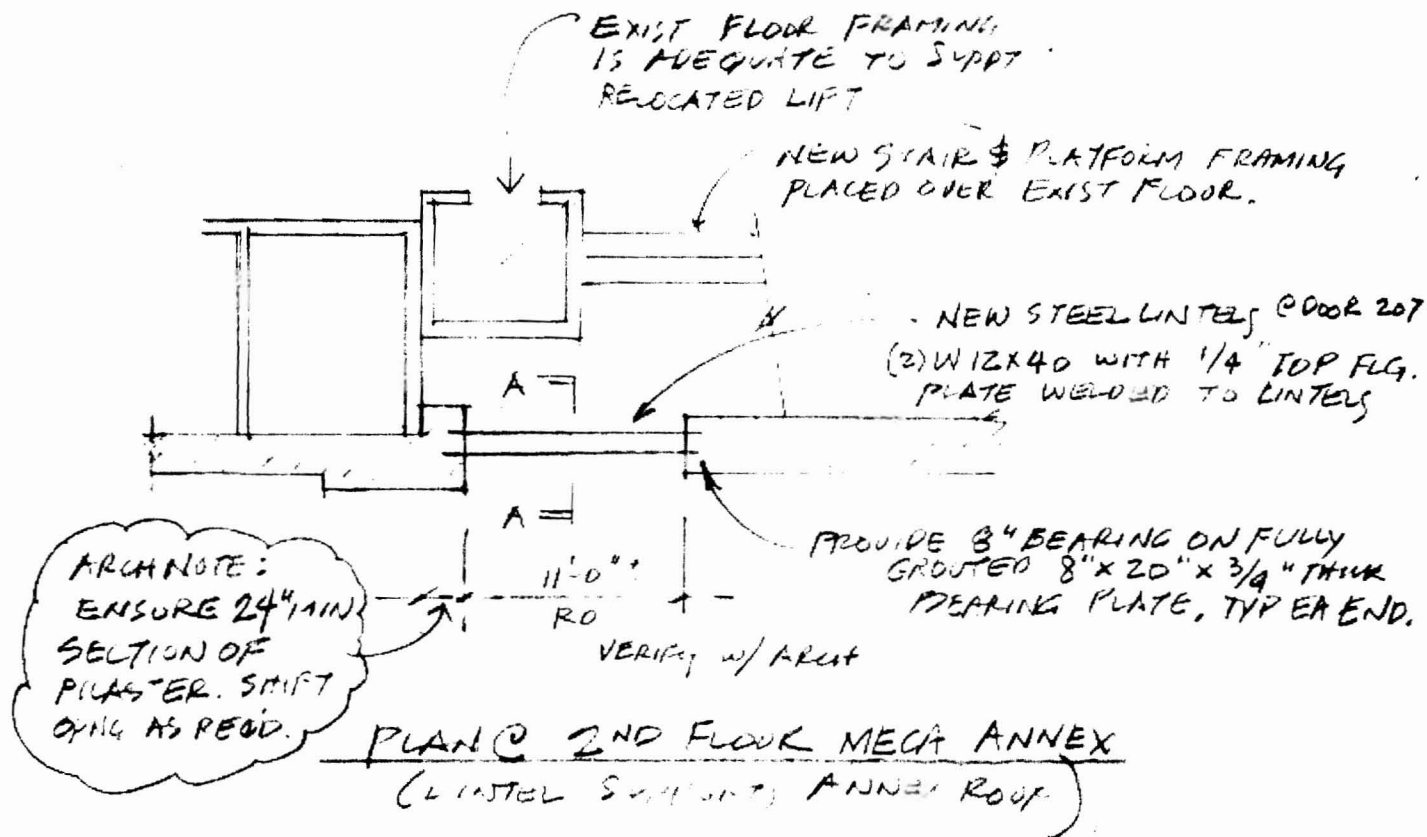 EXIST FLOOR FRAMING
IS ADEQUATE TO SUPPT
RELOCATED LIFT
NEW STAIR & PLATFORM FRAMING
PLACED OVER EXIST FLOOR.
NEW STEEL LINTELS @ DOOR 207
(2) W 12X40 WITH 1/4" TOP FLG.
PLATE WELDED TO LINTELS
A
A
PROVIDE 8" BEARING ON FULLY
GROUTED 8" X 20" X 3/4" THICK
BEARING PLATE, TYP EA END.
ARCH NOTE:
ENSURE 24" MIN
SECTION OF
PILASTER. SHIFT
OPNG AS REQ'D.
11'-0"±
RO
VERIFY W/ ARCH
PLAN @ 2ND FLOOR MECA ANNEX
(LINTEL SUPPORTS ANNEX ROOF)